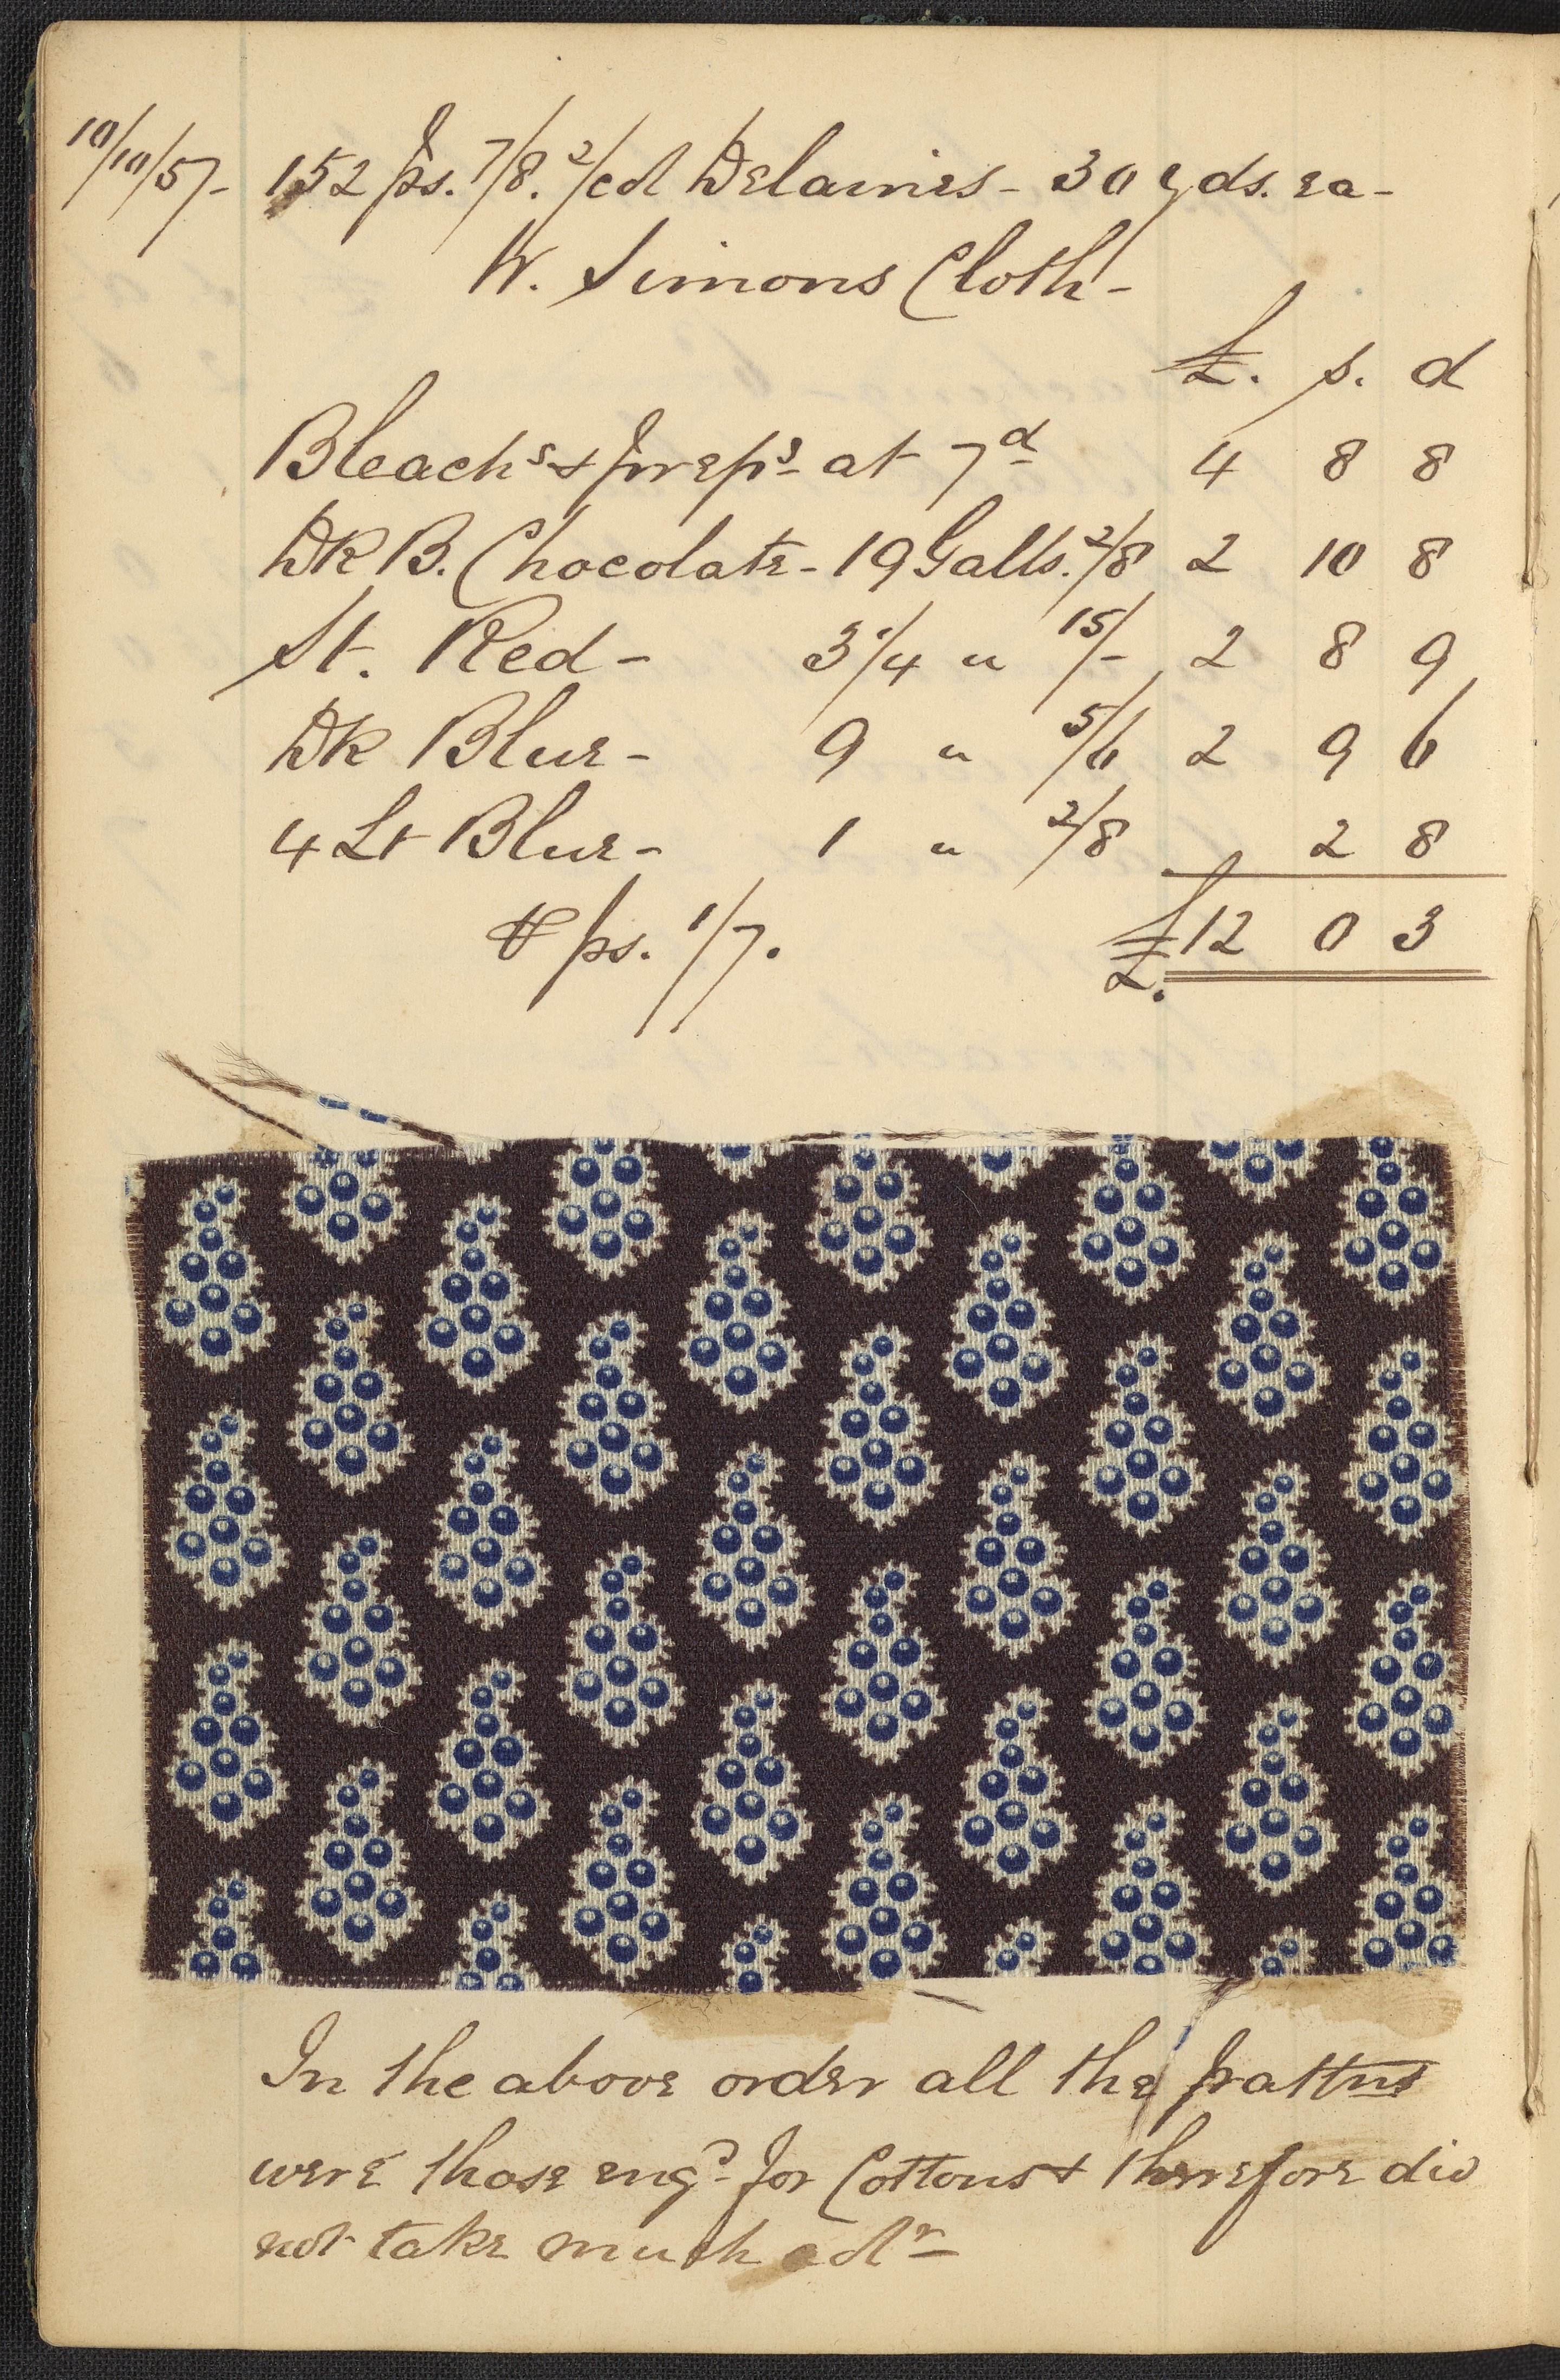 10/10/57- 152 ps. 7/8. 2/col Delaines - 30 yds. ea -
W. Simons Cloth -
£. s. d
Bleachs & preps at 7d 4 8 8
Dk B. Chocolate - 19 Galls. 2/8 2 10 8
St. Red - 3 1/4 " 15/- 2 8 9
Dk Blue - 9 " 5/6 2 9 6
4 Lt Blue - 1 " 2/8 2 8
⅌ ps. 1/7. £. 12 0 3
In the above order all the pattns
were those engd for Cottons & therefore did
not take much colr